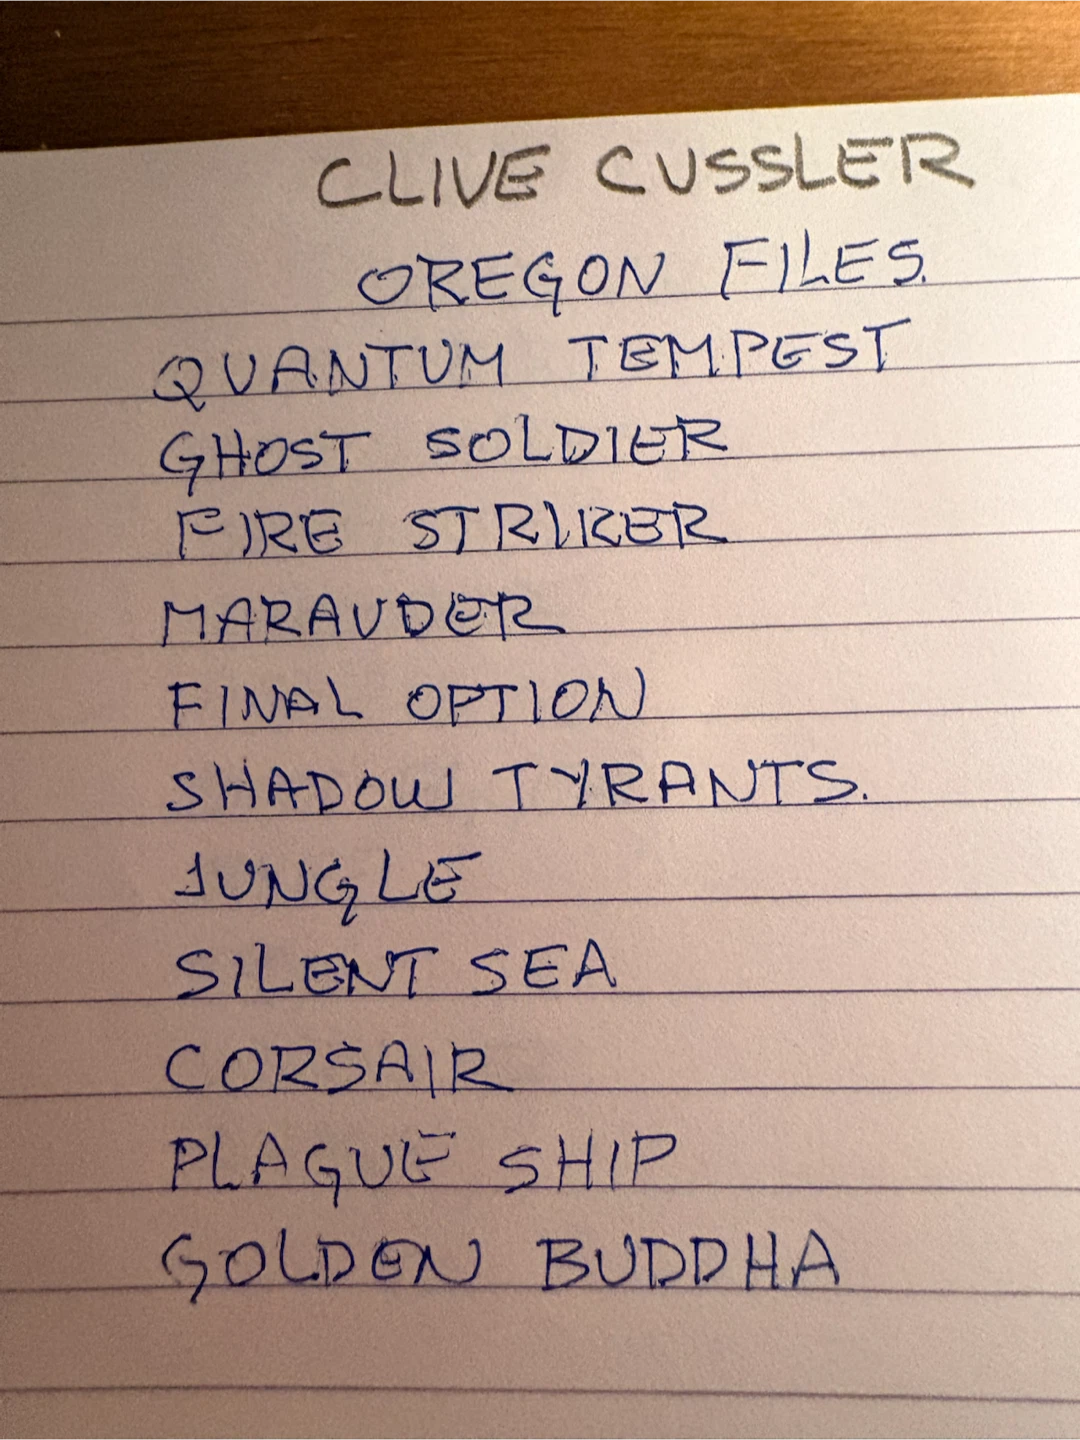 CLIVE CUSSLER
OREGON FILES.
QUANTUM TEMPEST
GHOST SOLDIER
FIRE STRIKER
MARAUDER
FINAL OPTION
SHADOW TYRANTS.
JUNGLE
SILENT SEA
CORSAIR
PLAGUE SHIP
GOLDEN BUDDHA